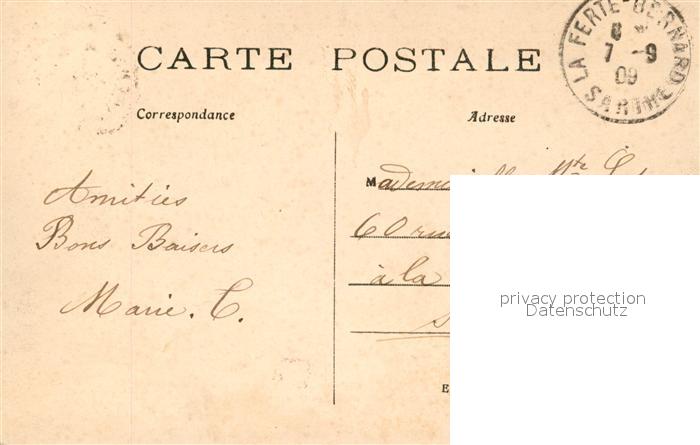 CARTE POSTALE
LA FERTE-BERNARD
8
7 -9
09
SARTHE
Correspondance
Adresse
Amitiés
Bons Baisers
Marie. C.
60 rue
à la
privacy protection
Datenschutz
E